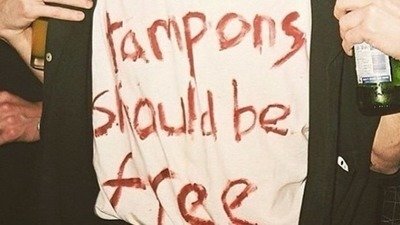 tampons
should be
free